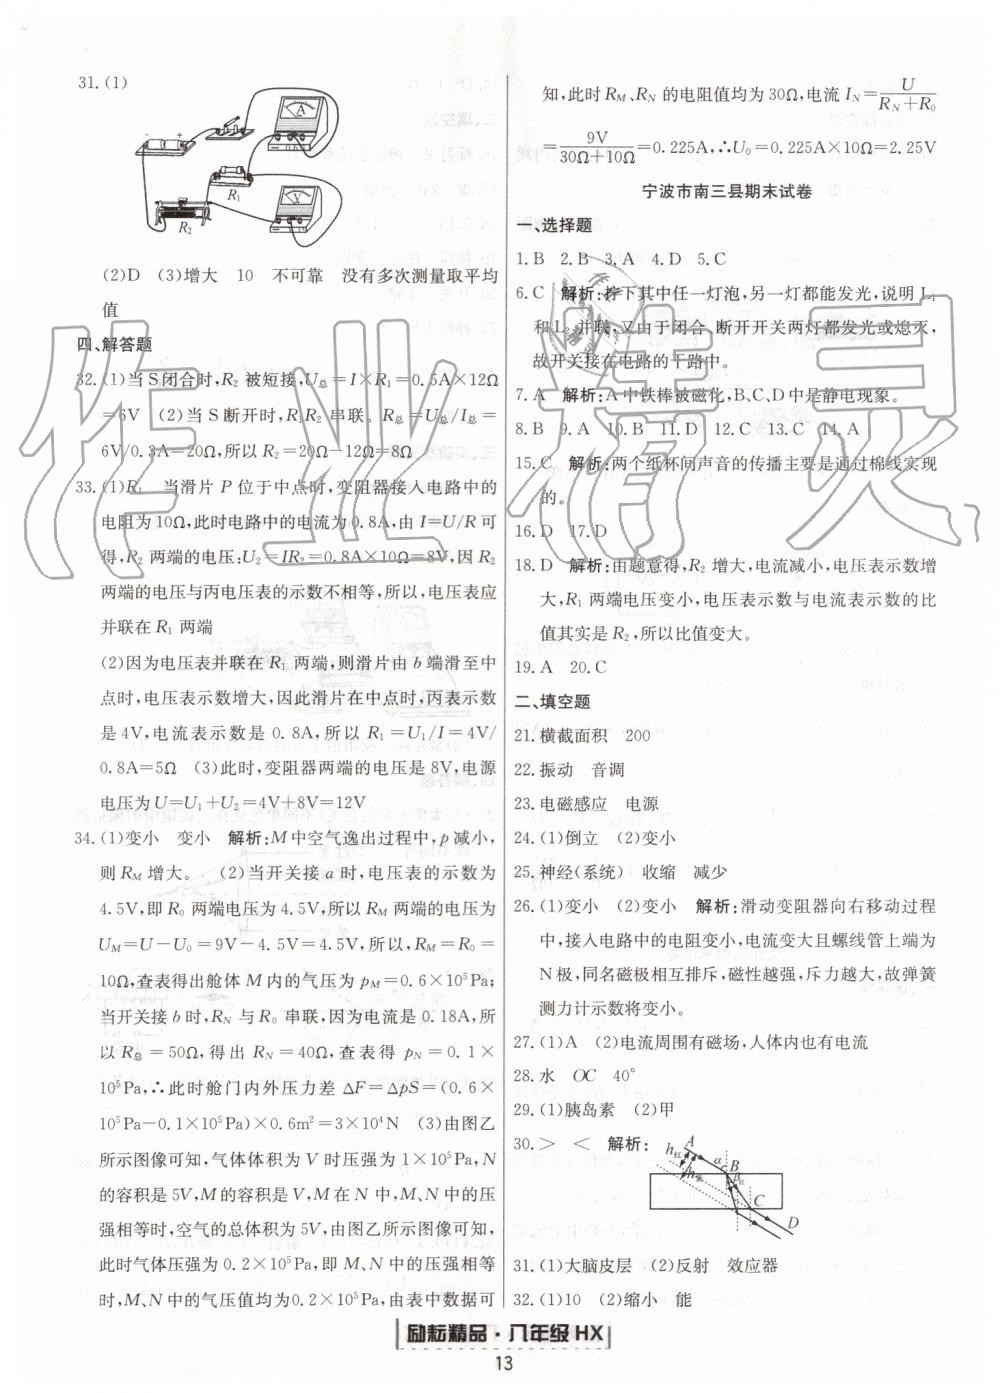 31.(1)
A
0.6
- +
R₁
V
R₂
(2)D (3)增大 10 不可靠 没有多次测量取平均
值
四、解答题
32.(1)当S闭合时,R₂ 被短接,U总=I×R₁=0.5A×12Ω
=6V (2)当 S 断开时,R₁R₂ 串联。R总=U总/I总=
6V/0.3A=20Ω,所以 R₂=20Ω-12Ω=8Ω
33.(1)R₁ 当滑片 P 位于中点时,变阻器接入电路中的
电阻为10Ω,此时电路中的电流为0.8A,由 I=U/R 可
得,R₂ 两端的电压:U₂=IR₂=0.8A×10Ω=8V,因 R₂
两端的电压与丙电压表的示数不相等,所以,电压表应
并联在 R₁ 两端
(2)因为电压表并联在 R₁ 两端,则滑片由 b 端滑至中
点时,电压表示数增大,因此滑片在中点时,丙表示数
是4V,电流表示数是 0.8A,所以 R₁=U₁/I=4V/
0.8A=5Ω (3)此时,变阻器两端的电压是 8V,电源
电压为U=U₁+U₂=4V+8V=12V
34.(1)变小 变小 解析:M 中空气逸出过程中,p 减小,
则 RM 增大。 (2)当开关接 a 时,电压表的示数为
4.5V,即 R₀ 两端电压为 4.5V,所以 RM 两端的电压为
UM=U-U₀=9V-4.5V=4.5V,所以,RM=R₀=
10Ω,查表得出舱体 M 内的气压为 pM=0.6×10⁵Pa;
当开关接 b 时,RN 与 R₀ 串联,因为电流是 0.18A,所
以 R总=50Ω,得出 RN=40Ω,查表得 pN=0.1×
10⁵Pa,∴此时舱门内外压力差 ΔF=ΔpS=(0.6×
10⁵Pa-0.1×10⁵Pa)×0.6m²=3×10⁴N (3)由图乙
所示图像可知,气体体积为 V 时压强为 1×10⁵Pa,N
的容积是 5V,M 的容积是 V,M 在 N 中,M、N 中的压
强相等时,空气的总体积为 5V,由图乙所示图像可知,
此时气体压强为 0.2×10⁵Pa,即 M、N 中的压强相等
时,M、N 中的气压值均为0.2×10⁵Pa,由表中数据可
知,此时 RM、RN 的电阻值均为30Ω,电流 IN=U/(RN+R₀)
=9V/(30Ω+10Ω)=0.225A,∴U₀=0.225A×10Ω=2.25V
宁波市南三县期末试卷
一、选择题
1.B 2.B 3.A 4.D 5.C
6.C 解析:拧下其中任一灯泡,另一灯都能发光,说明 L₁
和 L₂ 并联,又由于闭合、断开开关两灯都发光或熄灭,
故开关接在电路的干路中。
7.A 解析:A 中铁棒被磁化,B、C、D 中是静电现象。
8.B 9.A 10.B 11.D 12.C 13.C 14.A
15.C 解析:两个纸杯间声音的传播主要是通过棉线实现
的。
16.D 17.D
18.D 解析:由题意得,R₂ 增大,电流减小,电压表示数增
大,R₁ 两端电压变小,电压表示数与电流表示数的比
值其实是 R₂,所以比值变大。
19.A 20.C
二、填空题
21.横截面积 200
22.振动 音调
23.电磁感应 电源
24.(1)倒立 (2)变小
25.神经(系统) 收缩 减少
26.(1)变小 (2)变小 解析:滑动变阻器向右移动过程
中,接入电路中的电阻变小,电流变大且螺线管上端为
N 极,同名磁极相互排斥,磁性越强,斥力越大,故弹簧
测力计示数将变小。
27.(1)A (2)电流周围有磁场,人体内也有电流
28.水 OC 40°
29.(1)胰岛素 (2)甲
30.> < 解析:
A
h红
α
B
C
D
31.(1)大脑皮层 (2)反射 效应器
32.(1)10 (2)缩小 能
励耘精品·八年级HX
13
作业精灵